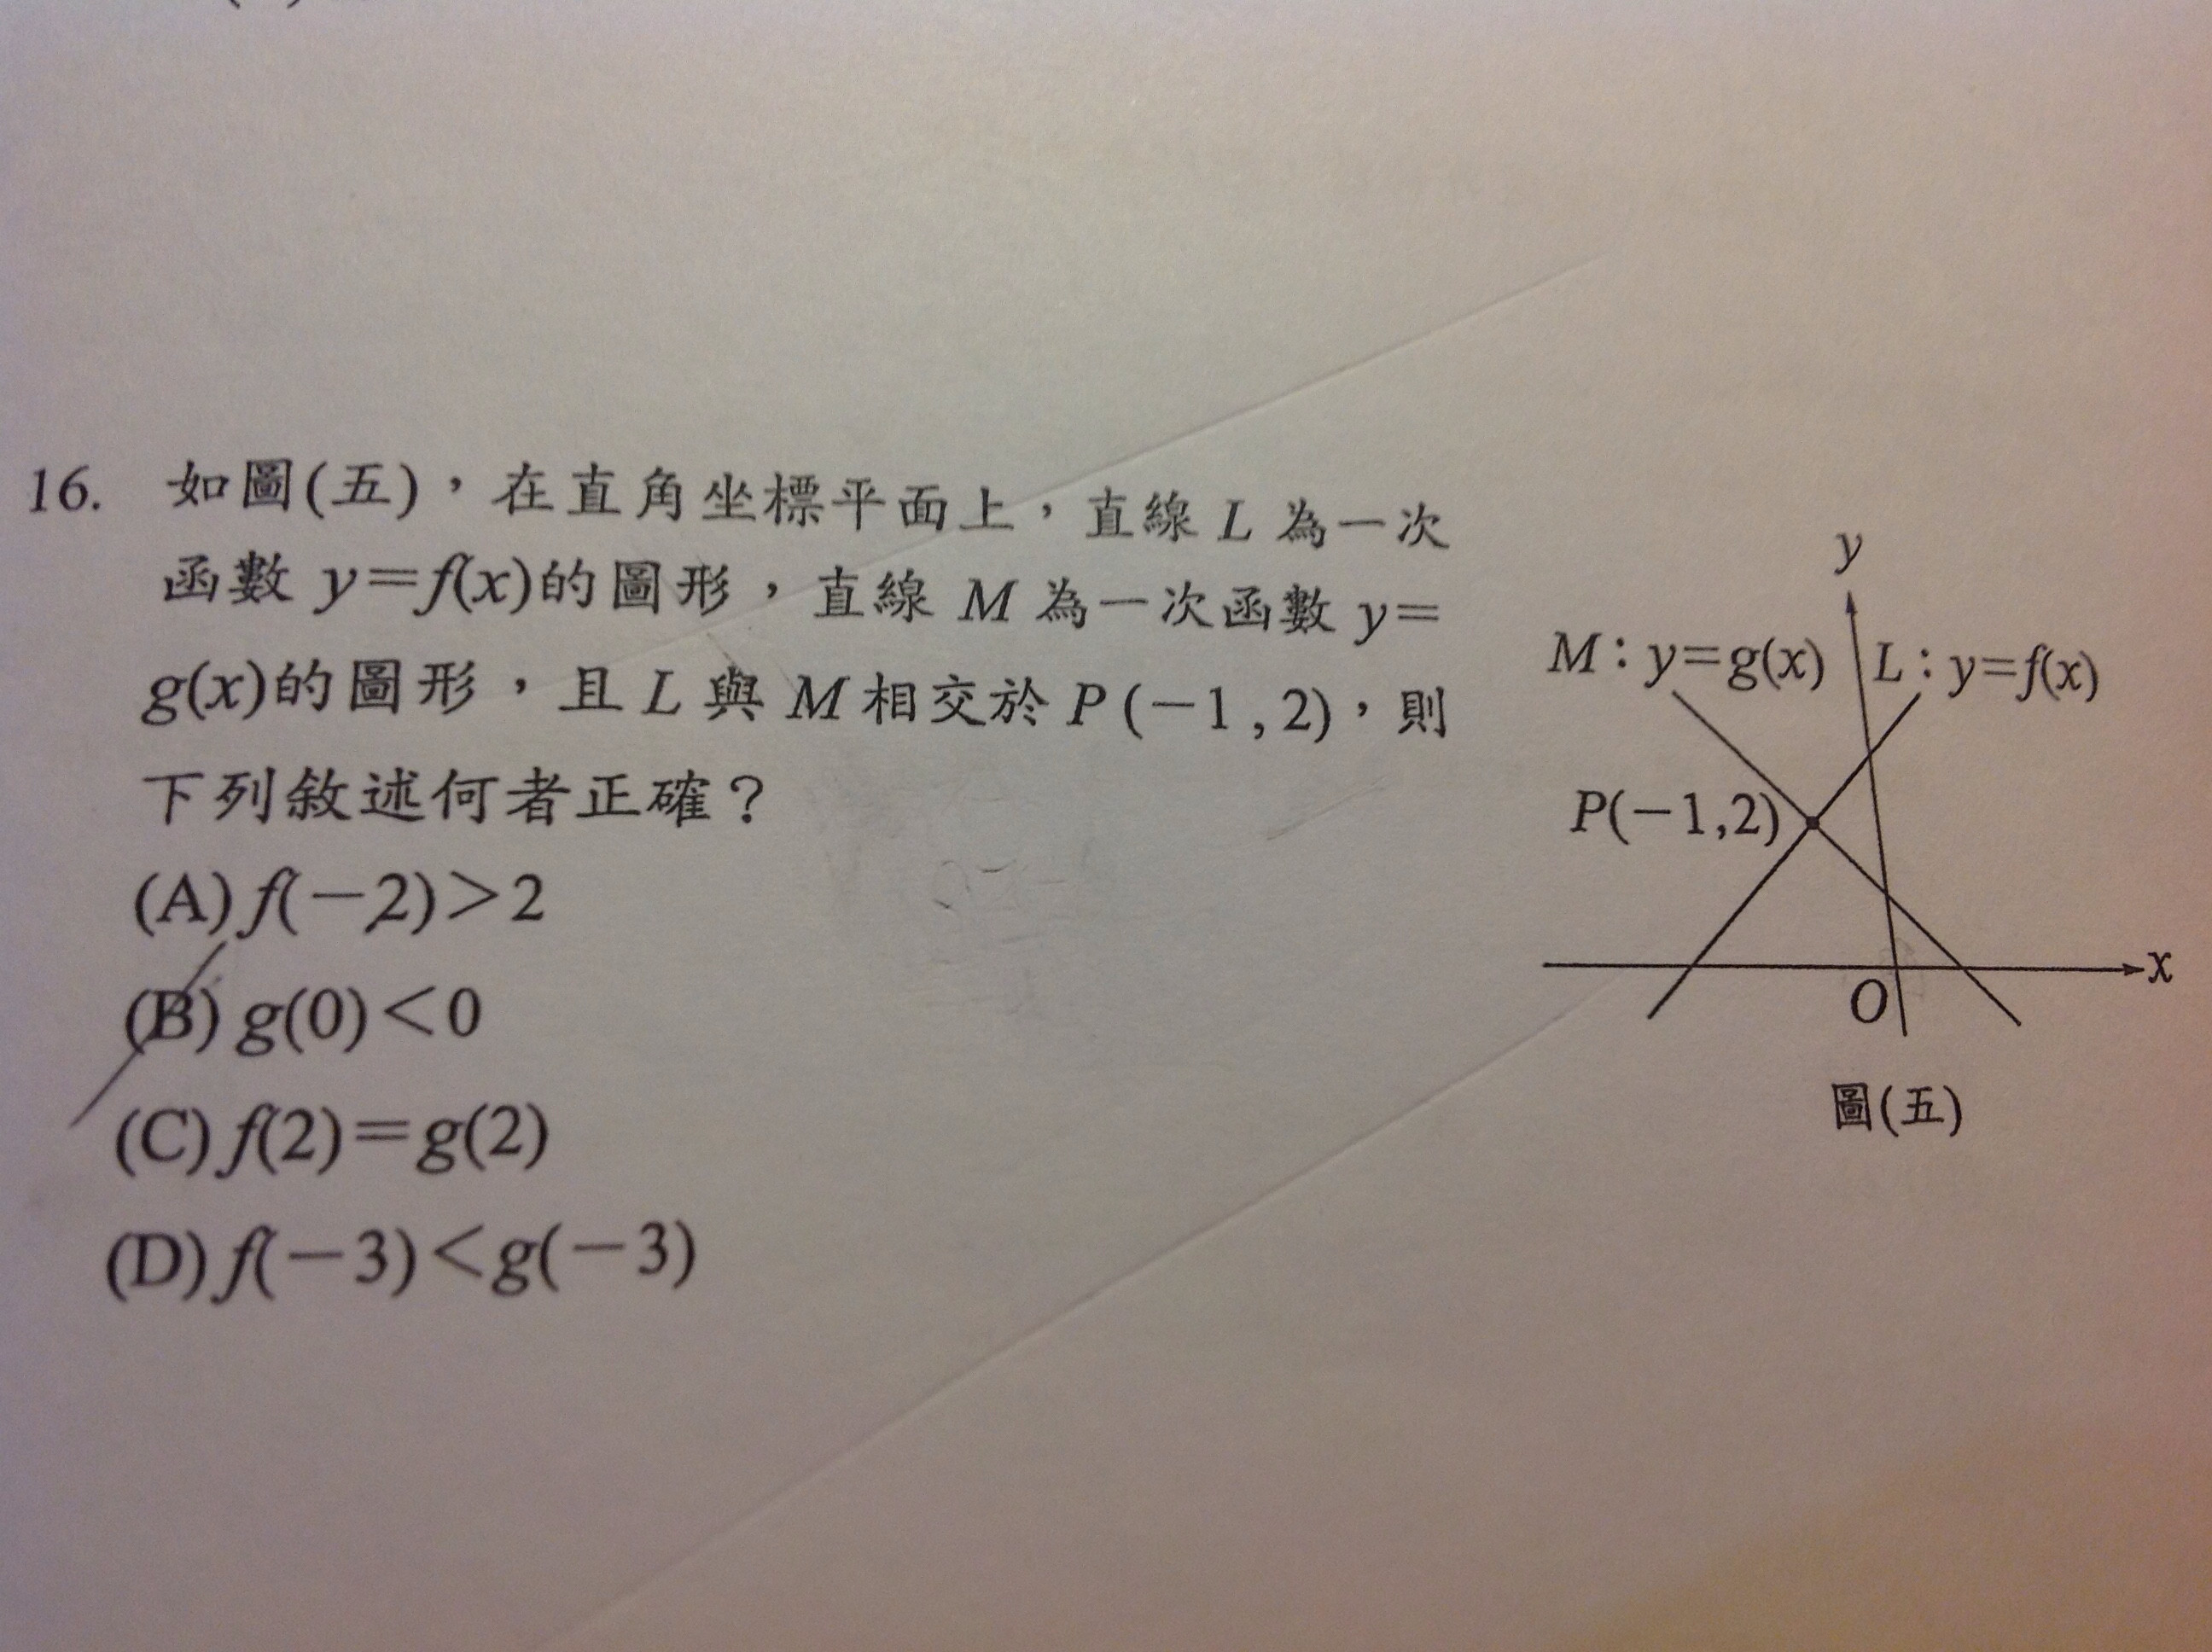 16. 如圖(五)，在直角坐標平面上，直線 L 為一次
函數 y=f(x)的圖形，直線 M 為一次函數 y=
g(x)的圖形，且 L 與 M 相交於 P(-1,2)，則
下列敘述何者正確？
(A) f(-2)>2
(B) g(0)<0
(C) f(2)=g(2)
(D) f(-3)<g(-3)
y
M：y=g(x)
L：y=f(x)
P(-1,2)
x
O
圖(五)